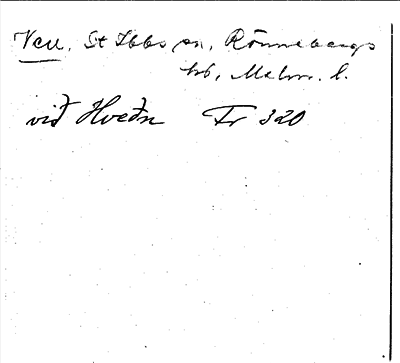 Ven. St Ibbs sn, Rönnebergs
hd, Malm. l.
við Hveðn Fr 320